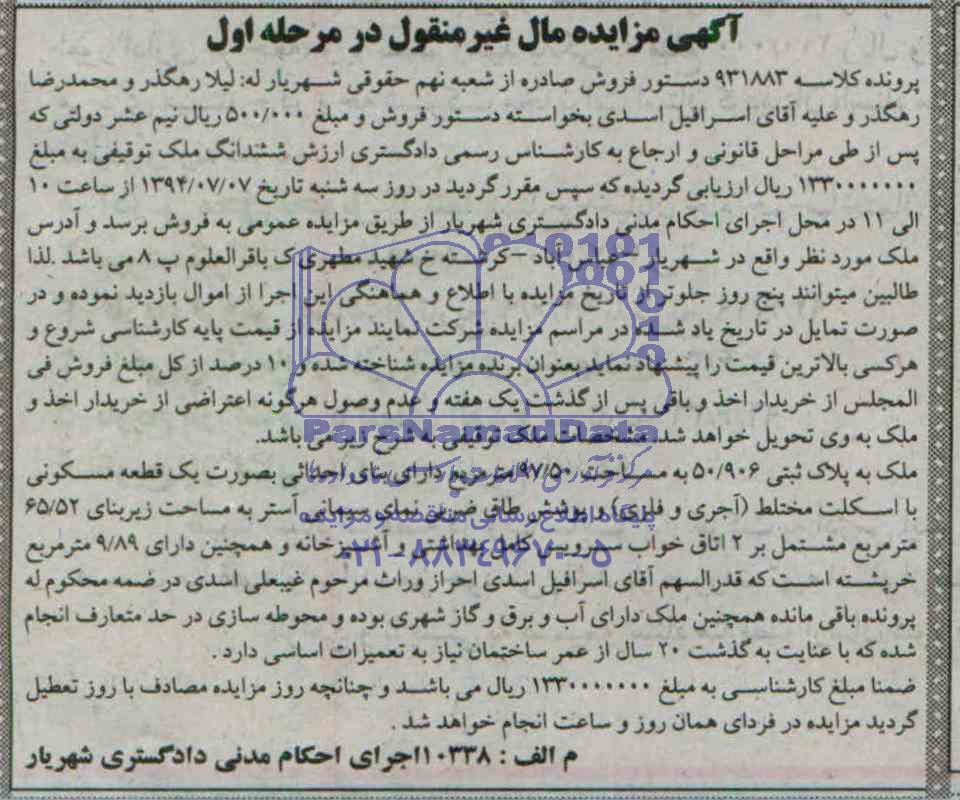 آگهی مزایده مال غیر منقول در مرحله اول
پرونده کلاسه ۹۳۱۸۸۳ دستور فروش صادره از شعبه نهم حقوقی شهریار له: لیلا رهگذر و محمدرضا
رهگذر و علیه آقای اسرافیل اسدی بخواسته دستور فروش و مبلغ ۵۰۰/۰۰۰ ریال نیم عشر دولتی که
پس از طی مراحل قانونی و ارجاع به کارشناس رسمی دادگستری ارزش ششدانگ ملک توقیفی به مبلغ
۱۳۳۰۰۰۰۰۰۰ ریال ارزیابی گردیده که سپس مقرر گردید در روز سه شنبه تاریخ ۱۳۹۴/۰۷/۰۷ از ساعت ۱۰
الی ۱۱ در محل اجرای احکام مدنی دادگستری شهریار از طریق مزایده عمومی به فروش برسد و آدرس
ملک مورد نظر واقع در شهریار – عباس آباد – کرشته خ شهید مطهری ک باقرالعلوم پ ۸ می باشد .لذا
طالبین میتوانند پنج روز جلوتر از تاریخ مزایده با اطلاع و هماهنگی این اجرا از اموال بازدید نموده و در
صورت تمایل در تاریخ یاد شده در مراسم مزایده شرکت نمایند مزایده از قیمت پایه کارشناسی شروع و
هرکسی بالاترین قیمت را پیشنهاد نماید بعنوان برنده مزایده شناخته شده و ۱۰ درصد از کل مبلغ فروش فی
المجلس از خریدار اخذ و باقی پس از گذشت یک هفته و عدم وصول هرگونه اعتراضی از خریدار اخذ و
ملک به وی تحویل خواهد شد. مشخصات ملک توقیفی به شرح زیر می باشد.
ParsNamadData
ملک به پلاک ثبتی ۵۰/۹۰۶ به مساحت ۹۷/۵۰ مترمربع دارای بنای احداثی بصورت یک قطعه مسکونی
با اسکلت مختلط (آجری و فلزی) و پوشش طاق ضربی نمای سیمانی آستر به مساحت زیربنای ۶۵/۵۲
پایگاه اطلاع رسانی مناقصه و مزایده
مترمربع مشتمل بر ۲ اتاق خواب سرویس کامل بهداشتی و آشپزخانه و همچنین دارای ۹/۸۹ مترمربع
۰۲۱-۸۸۳۴۹۶۷۰-۵
خرپشته است که قدرالسهم آقای اسرافیل اسدی احراز وراث مرحوم غیبعلی اسدی در ضمه محکوم له
پرونده باقی مانده همچنین ملک دارای آب و برق و گاز شهری بوده و محوطه سازی در حد متعارف انجام
شده که با عنایت به گذشت ۲۰ سال از عمر ساختمان نیاز به تعمیرات اساسی دارد .
ضمنا مبلغ کارشناسی به مبلغ ۱۳۳۰۰۰۰۰۰۰ ریال می باشد و چنانچه روز مزایده مصادف با روز تعطیل
گردید مزایده در فردای همان روز و ساعت انجام خواهد شد .
م الف : ۱۰۳۳۸اجرای احکام مدنی دادگستری شهریار